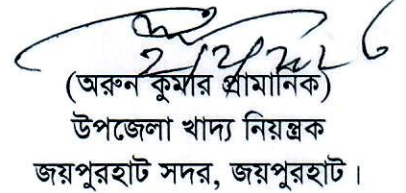 (অরুন কুমার প্রামানিক)
উপজেলা খাদ্য নিয়ন্ত্রক
জয়পুরহাট সদর, জয়পুরহাট।